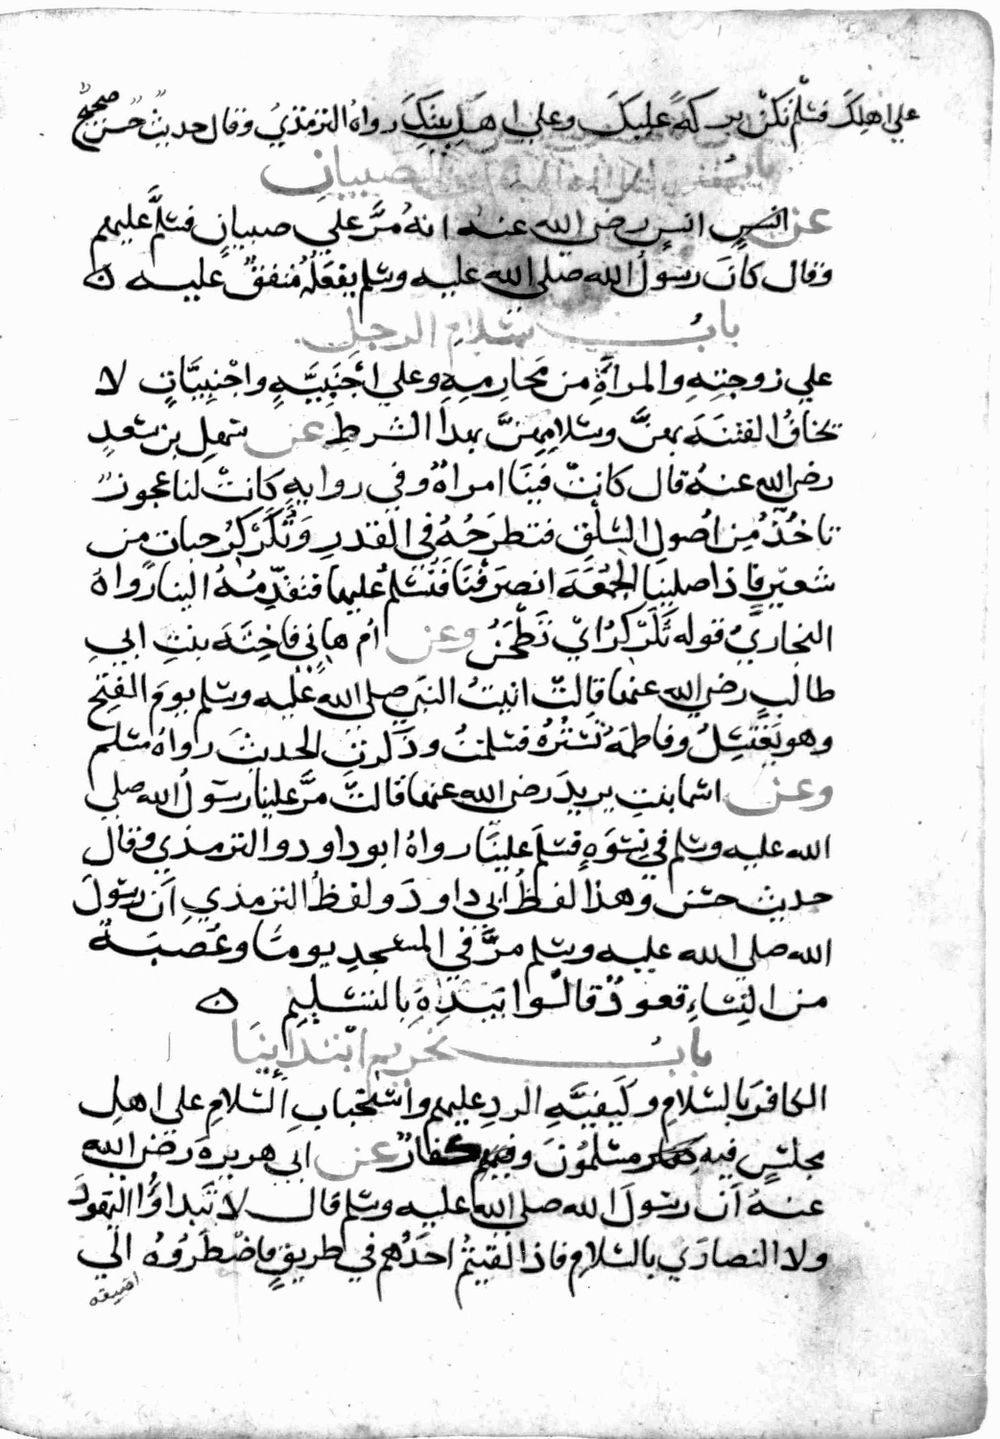 علي اهلك فسلم تكن بركة عليك وعلي اهل بيتك رواه الترمذي وقال حديث حسن صحيح
باب الصبيان
عن انس رضي الله عنه انه مرَّ علي صبيانٍ فسلَّم عليهم
وقال كان رسول الله صلي الله عليه وسلم يفعله متفق عليه ه
باب سلام الرجل
علي زوجته والمراة من محارمه وعلي اجنبيَّةٍ واجنبيَّاتٍ لا
يخاف الفتنة بهنَّ وسلامهنَّ بهذا الشرط عن سهل بن سعد
رضي الله عنه قال كانت فينا امراة وفي رواية كانت لنا عجوز
تاخذ من اصول السلق فتطرحه في القدر وتكركر حبات من
شعير فاذا صلينا الجمعة انصرفنا فنسلم عليها فتقدمه الينا رواه
البخاري قوله تكركر اي تطحن وعن ام هاني فاختة بنت ابي
طالب رضي الله عنها قالت اتيت النبي صلي الله عليه وسلم يوم الفتح
وهو يغتسل وفاطمة تستره فسلمت وذكرت الحديث رواه مسلم
وعن اسما بنت يزيد رضي الله عنها قالت مرَّ علينا رسول الله صلي
الله عليه وسلم في نسوة فسلم علينا رواه ابو داود والترمذي وقال
حديث حسن وهذا لفظ ابي داود ولفظ الترمذي ان رسول
الله صلي الله عليه وسلم مرَّ في المسجد يوما وعصبة
من النساء قعود قالوا بيده بالتسليم ه
باب تحريم ابتداينا
الكافر بالسلام وكيفيَّة الرد عليهم واستحباب السلام علي اهل
مجلس فيه مسلمون وفيهم كفار عن ابي هريرة رضي الله
عنه ان رسول الله صلي الله عليه وسلم قال لا تبداوا اليهود
ولا النصاري بالسلام فاذا لقيتم احدهم في طريق فاضطروه الي
اضيقه